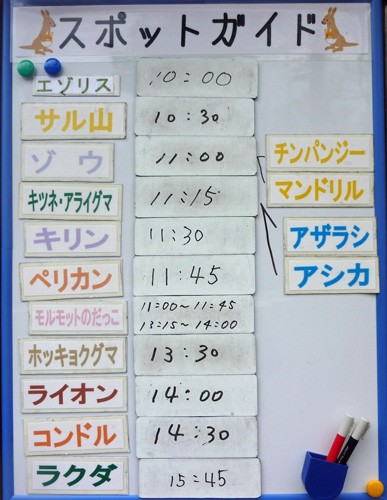 スポットガイド
エゾリス 10:00
サル山 10:30
ゾウ 11:00 チンパンジー
マンドリル
キツネ・アライグマ 11:15
キリン 11:30 アザラシ
アシカ
ペリカン 11:45
モルモットのだっこ 11:00～11:45
13:15～14:00
ホッキョクグマ 13:30
ライオン 14:00
コンドル 14:30
ラクダ 15:45